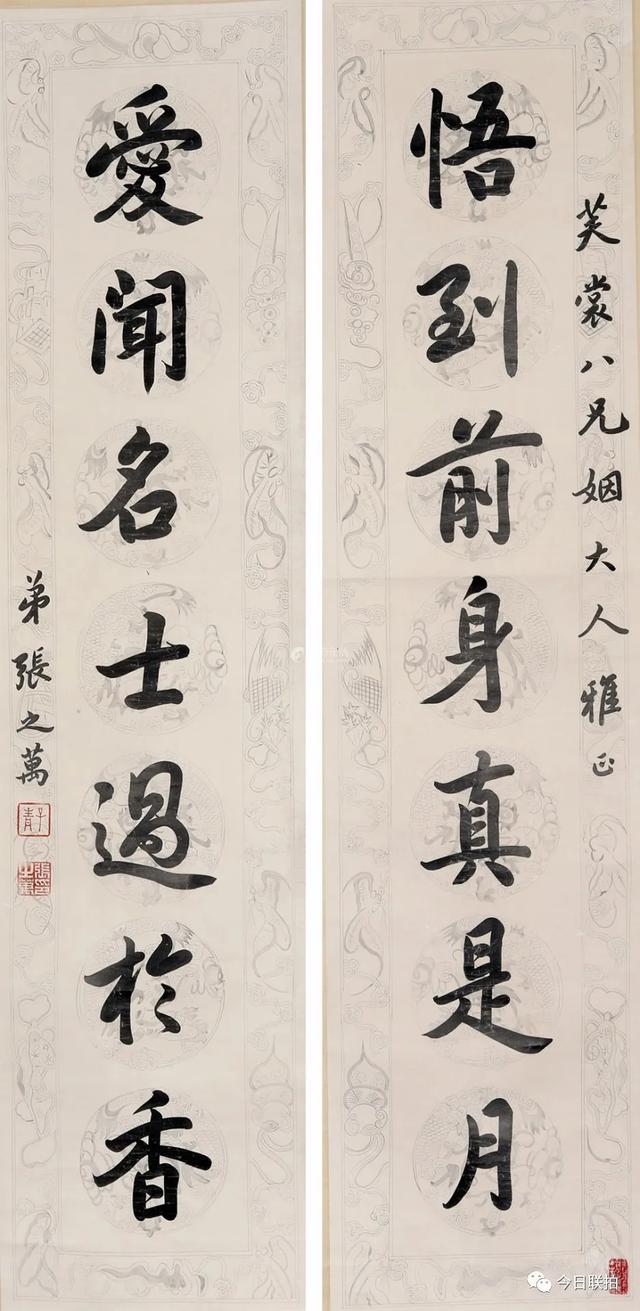 芙裳八兄姻大人雅正
悟到前身真是月
愛聞名士過於香
弟張之萬
子青
張之萬印
今日联拍